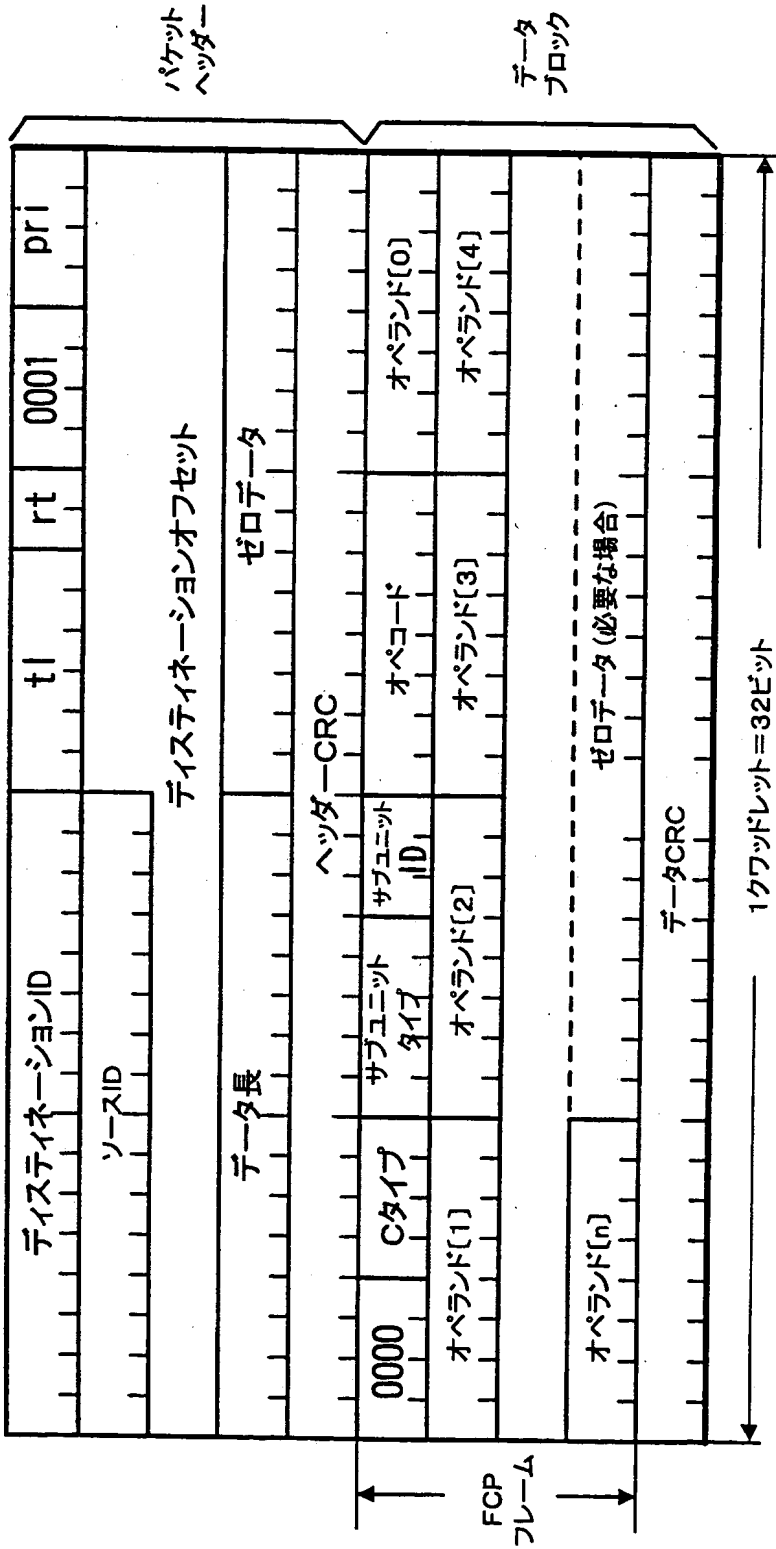 ディスティネーションID tl rt 0001 pri
ソースID
ディスティネーションオフセット
データ長 ゼロデータ
ヘッダーCRC
パケット
ヘッダー
0000 Cタイプ サブユニット
タイプ サブユニット
ID オペコード オペランド[0]
オペランド[1] オペランド[2] オペランド[3] オペランド[4]
オペランド[n] ゼロデータ(必要な場合)
データCRC
データ
ブロック
FCP
フレーム
1クワッドレット=32ビット